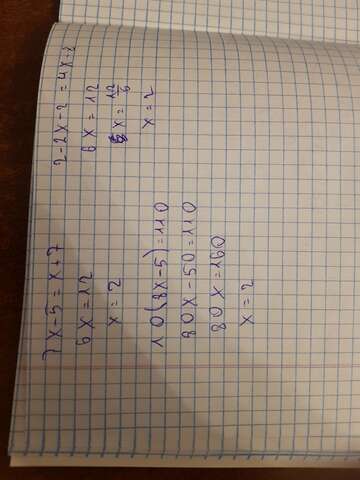 7x-5=x+7
6x=12
x=2
10(8x-5)=110
80x-50=110
80x=160
x=2
2-2x-2=4x+2
6x=12
x=12/6
x=2